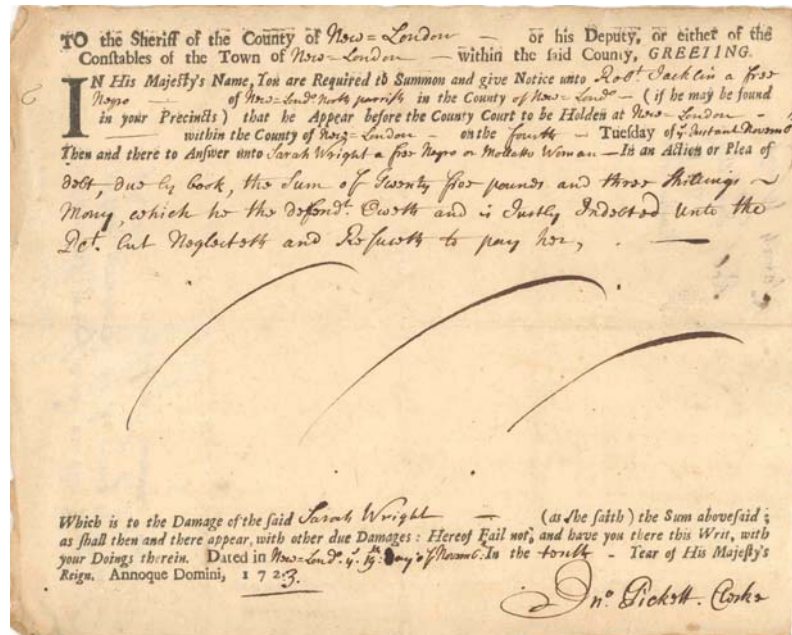 TO the Sheriff of the County of New=London — or his Deputy, or either of the
Conſtables of the Town of New=London — within the ſaid County, GREETING.
IN His Majeſty's Name, You are Required to Summon and give Notice unto Robt. Jacklin a free
Negro — of New=Londo. North parrish in the County of New=Londo. — (if he may be found
in your Precincts) that he Appear before the County Court to be Holden at New=London —
— within the County of New=London — on the fourth — Tueſday of ye. Instant Novemb
Then and there to Anſwer unto Sarah Wright a free Negro or Mollatto Woman — In an Action or Plea of
debt, due by book, the Sum of Twenty five pounds and three Shillings
Mony, which he the defendt. Oweth and is Justly Indebted Unto the
but Neglecteth and Refuseth to pay her, . —
Which is to the Damage of the ſaid Sarah Wright — (as ſhe ſaith) the Sum aboveſaid;
as ſhall then and there appear, with other due Damages: Hereof Fail not, and have you there this Writ, with
your Doings therein. Dated in New=Londo. ye. Day of Novemb: In the tenth - Year of His Majeſty's
Reign. Annoque Domini, 1723.
Jno. Pickett. Clerke